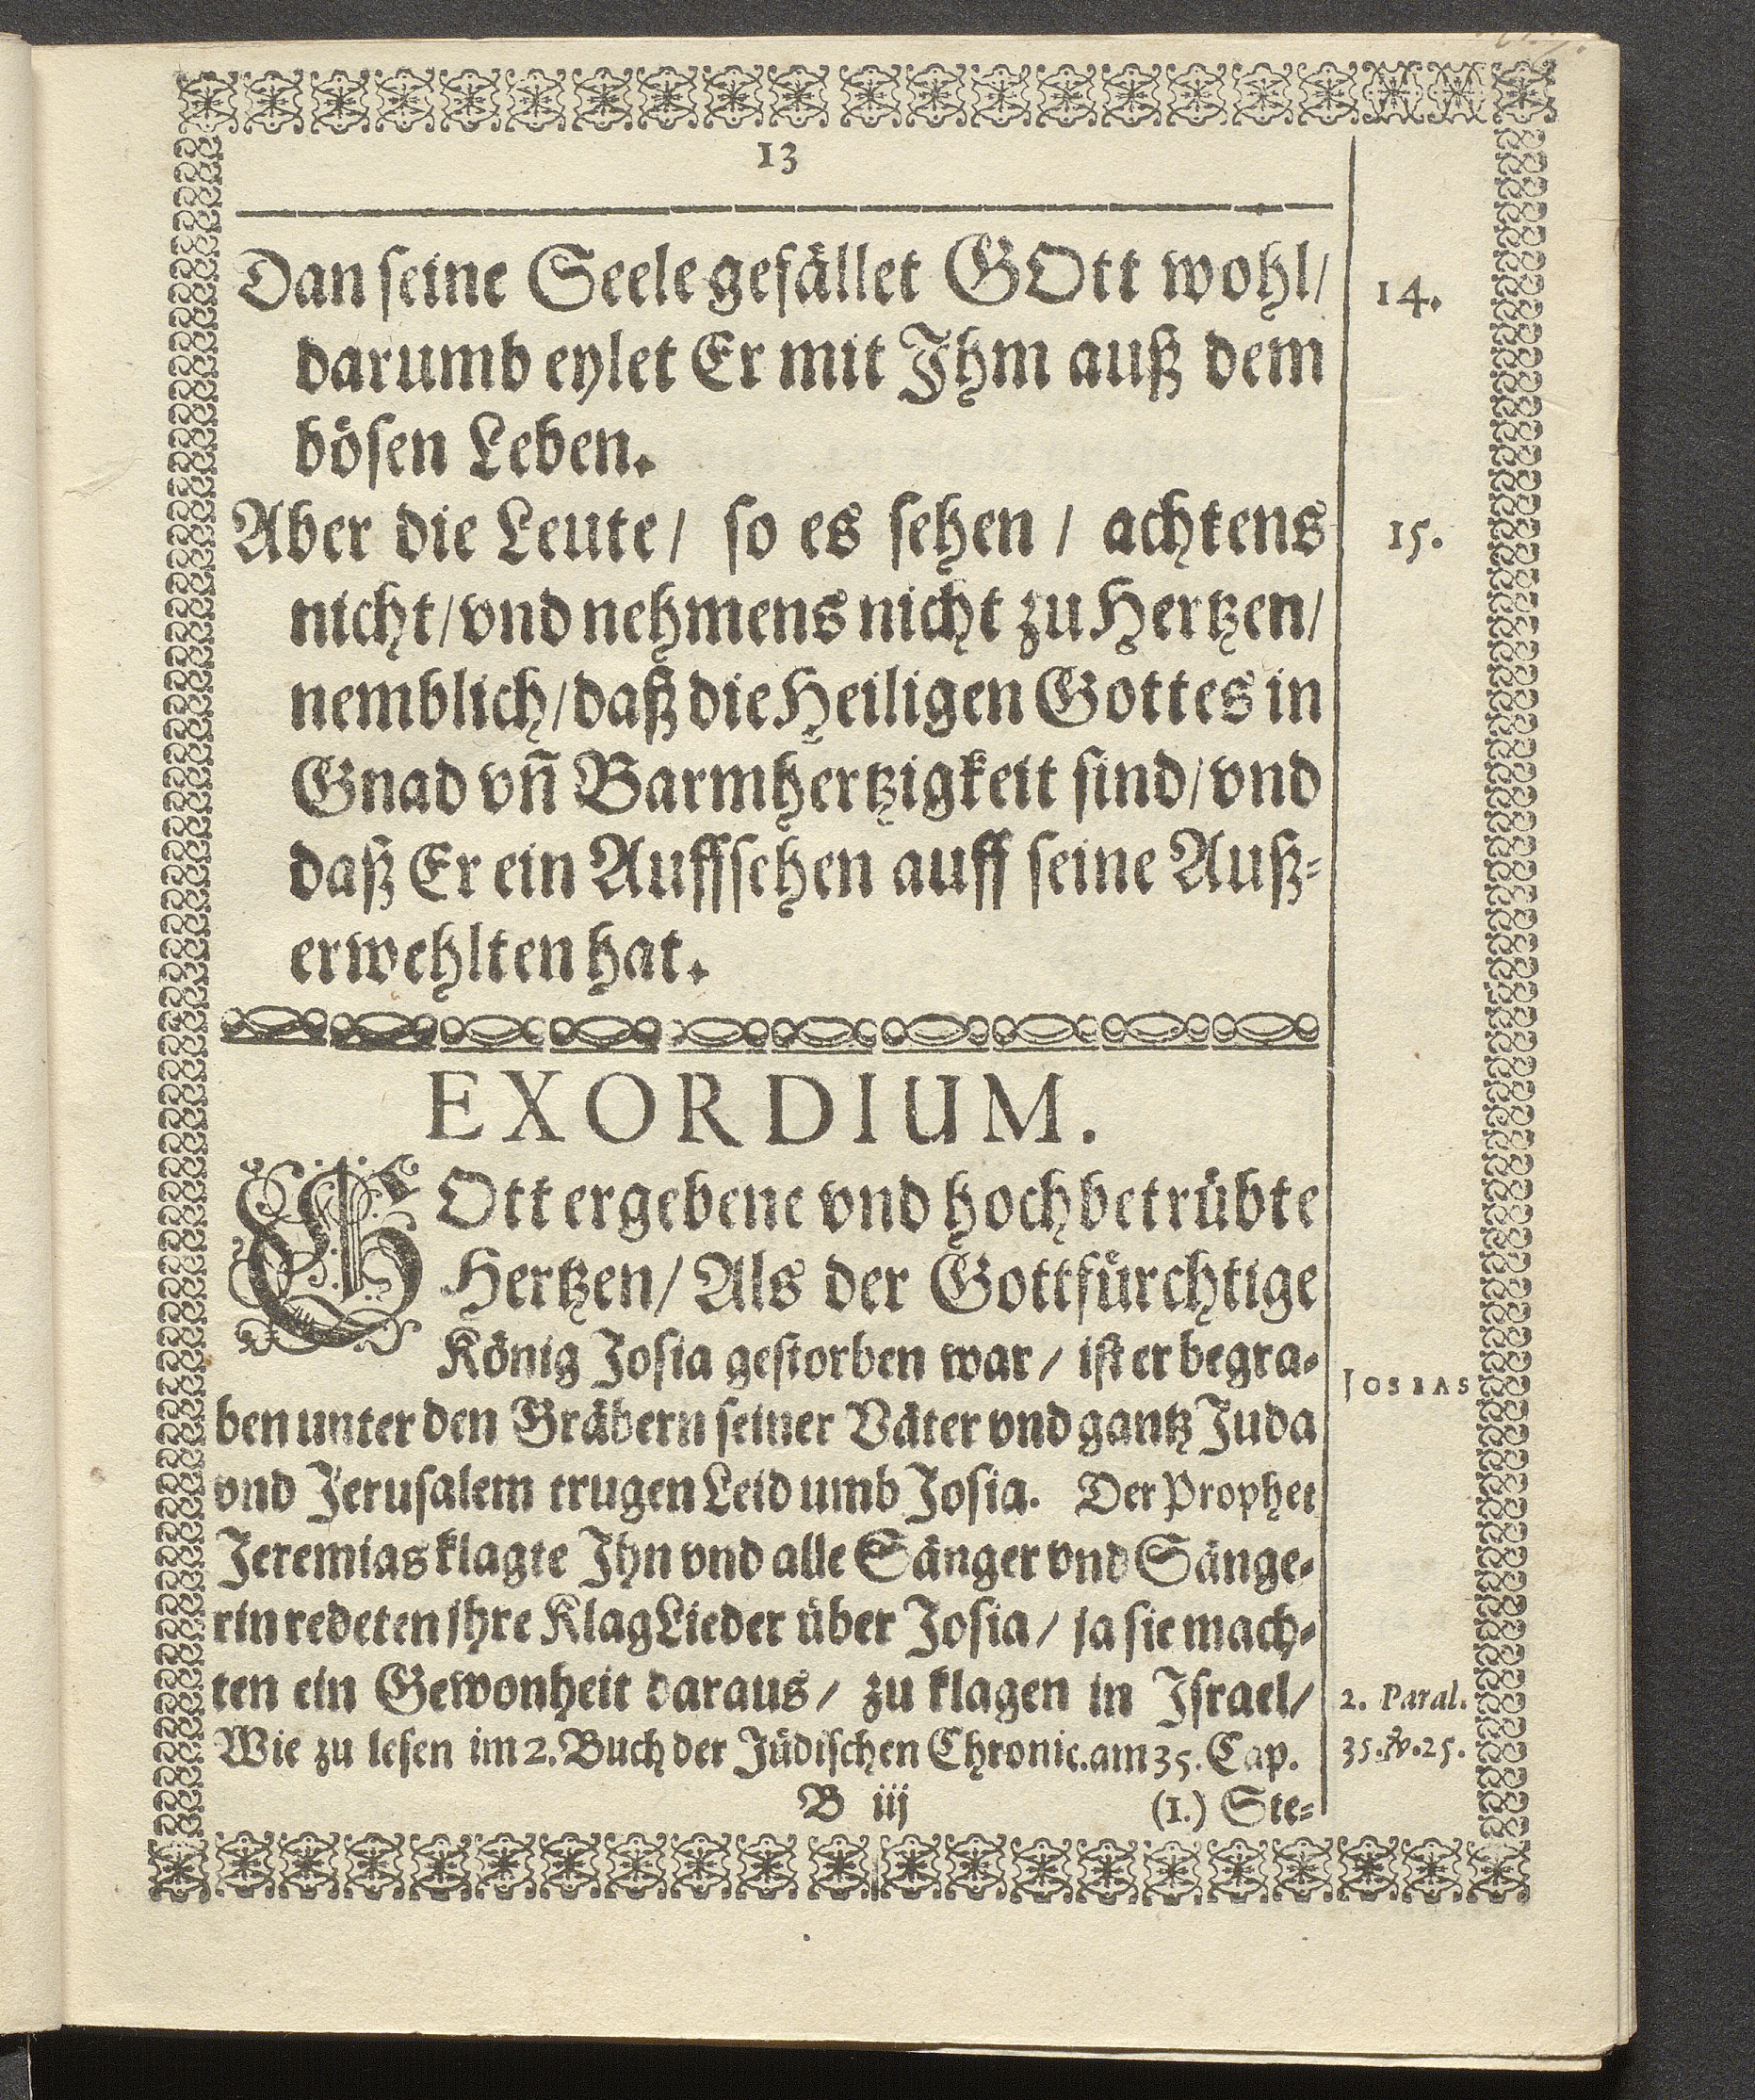 13
Dan seine Seele gefället GOtt wohl/
14.
darumb eylet Er mit Ihm auß dem
bösen Leben.
Aber die Leute/ so es sehen/ achtens
15.
nicht/ vnd nehmens nicht zu Hertzen/
nemblich/ daß die Heiligen Gottes in
Gnad vñ Barmhertzigkeit sind/ vnd
daß Er ein Auffsehen auff seine Auß-
erwehlten hat.
EXORDIUM.
GOtt ergebene vnd hochbetrübte
Hertzen/ Als der Gottfürchtige
König Josia gestorben war/ ist er begra-
JOSIAS
ben unter den Gräbern seiner Väter vnd gantz Juda
vnd Jerusalem trugen Leid umb Josia. Der Prophet
Jeremias klagte Ihn vnd alle Sänger vnd Sänge-
rin redeten ihre KlagLieder über Josia/ ja sie mach-
ten ein Gewonheit daraus/ zu klagen in Israel/
2. Paral.
Wie zu lesen im 2. Buch der Jüdischen Chronic. am 35. Cap.
35. ℣. 25.
B iij
(1.) Ste-